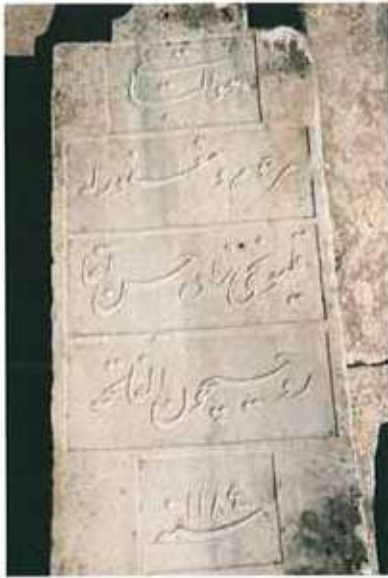 هو الباقی
مرحوم و مغفور له
حسن اغا
روحیچون الفاتحه
سنه ١١٨٦